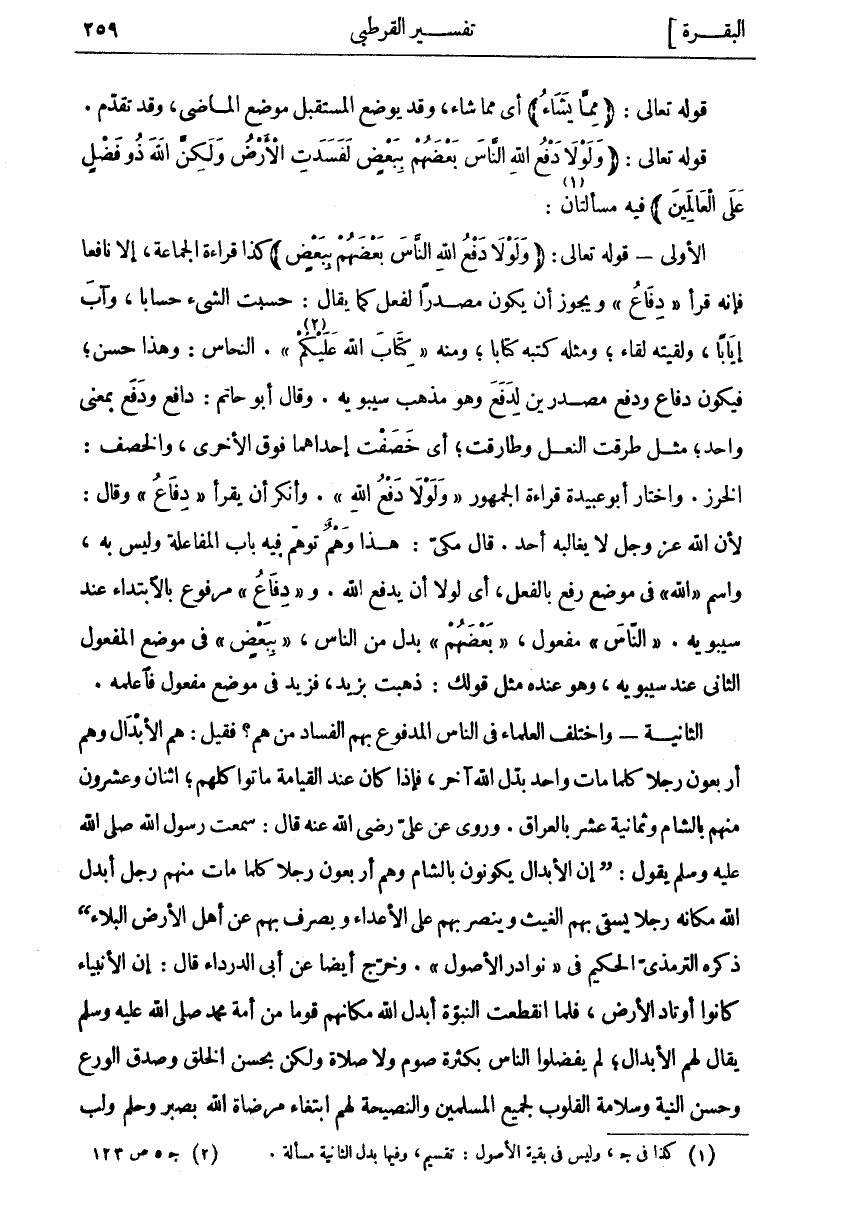 البقـــرة ]
تفســـير القرطبي
٢٥٩
قوله تعالى : ﴿ مِمَّا يَشَاءُ ﴾ أى مما شاء، وقد يوضع المستقبل موضع المـاضى، وقد تقدّم .
قوله تعالى : ﴿ وَلَوْلَا دَفْعُ اللهِ النَّاسَ بَعْضَهُمْ بِبَعْضٍ لَفَسَدَتِ الْأَرْضُ وَلَـكِنَّ اللهَ ذُو فَضْلٍ
عَلَى الْعَالَمِينَ ﴾ فيه مسألتان (١) :
الأولى — قوله تعالى: ﴿ وَلَوْلَا دَفْعُ اللهِ النَّاسَ بَعْضَهُمْ بِبَعْضٍ ﴾ كذا قراءة الجماعة، إلا نافعا
فإنه قرأ « دِفَاعُ » ويجوز أن يكون مصـدرًا لفعل كما يقال : حسبت الشىء حسابا ، وآبَ
إيَابًا ، ولقيته لقاء ؛ ومثله كتبه كتابا ؛ ومنه « كِتَابَ الله عَلَيْكُمْ (٢) » . النحاس : وهذا حسن؛
فيكون دفاع ودفع مصـدرين لِدَفَعَ وهو مذهب سيبويه . وقال أبو حاتم : دافع ودَفَع بمعنى
واحد؛ مثـل طرقت النعـل وطارقت؛ أى خَصَفْت إحداهما فوق الأخرى ، والخصف :
الخرز . واختار أبو عبيدة قراءة الجمهور « وَلَوْلَا دَفْعُ اللهِ » . وأنكر أن يقرأ « دِفَاعُ » وقال :
لأن الله عز وجل لا يغالبه أحد . قال مكىّ : هـذا وَهْمٌ توهّم فيه باب المفاعلة وليس به ،
واسم «الله» فى موضع رفع بالفعل، أى لولا أن يدفع الله . و « دِفَاعُ » مرفوع بالآبتداء عند
سيبويه . « النَّاسَ » مفعول ، « بَعْضَهُمْ » بدل من الناس ، « بِبَعْضٍ » فى موضع المفعول
الثانى عند سيبويه ، وهو عنده مثل قولك : ذهبت بزيد، فزيد فى موضع مفعول فآعلمه .
الثانيـة — واختلف العلماء فى الناس المدفوع بهم الفساد من هم؟ فقيل : هم الأَبْدَال وهم
أربعون رجلا كلما مات واحد بدّل الله آخر ، فإذا كان عند القيامة ماتوا كلهم؛ اثنان وعشرون
منهم بالشام وثمانية عشر بالعراق . وروى عن علىّ رضى الله عنه قال : سمعت رسول الله صلى الله
عليه وسلم يقول : ”إن الأبدال يكونون بالشام وهم أربعون رجلا كلما مات منهم رجل أبدل
الله مكانه رجلا يسقى بهم الغيث وينصر بهم على الأعداء ويصرف بهم عن أهل الأرض البلاء“
ذكره الترمذىّ الحكيم فى « نوادر الأصول » . وخرّج أيضا عن أبى الدرداء قال : إن الأنبياء
كانوا أوتاد الأرض ، فلما انقطعت النبوّة أبدل الله مكانهم قوما من أمة محمد صلى الله عليه وسلم
يقال لهم الأبدال؛ لم يفضلوا الناس بكثرة صوم ولا صلاة ولكن بحسن الخلق وصدق الورع
وحسن النية وسلامة القلوب لجميع المسلمين والنصيحة لهم ابتغاء مرضاة الله بصبر وحلم ولب
(١) كذا فى جـ ، وليس فى بقية الأصول : تقسيم ، وفيها بدل الثانية مسألة . (٢) جـ ٥ ص ١٢٣